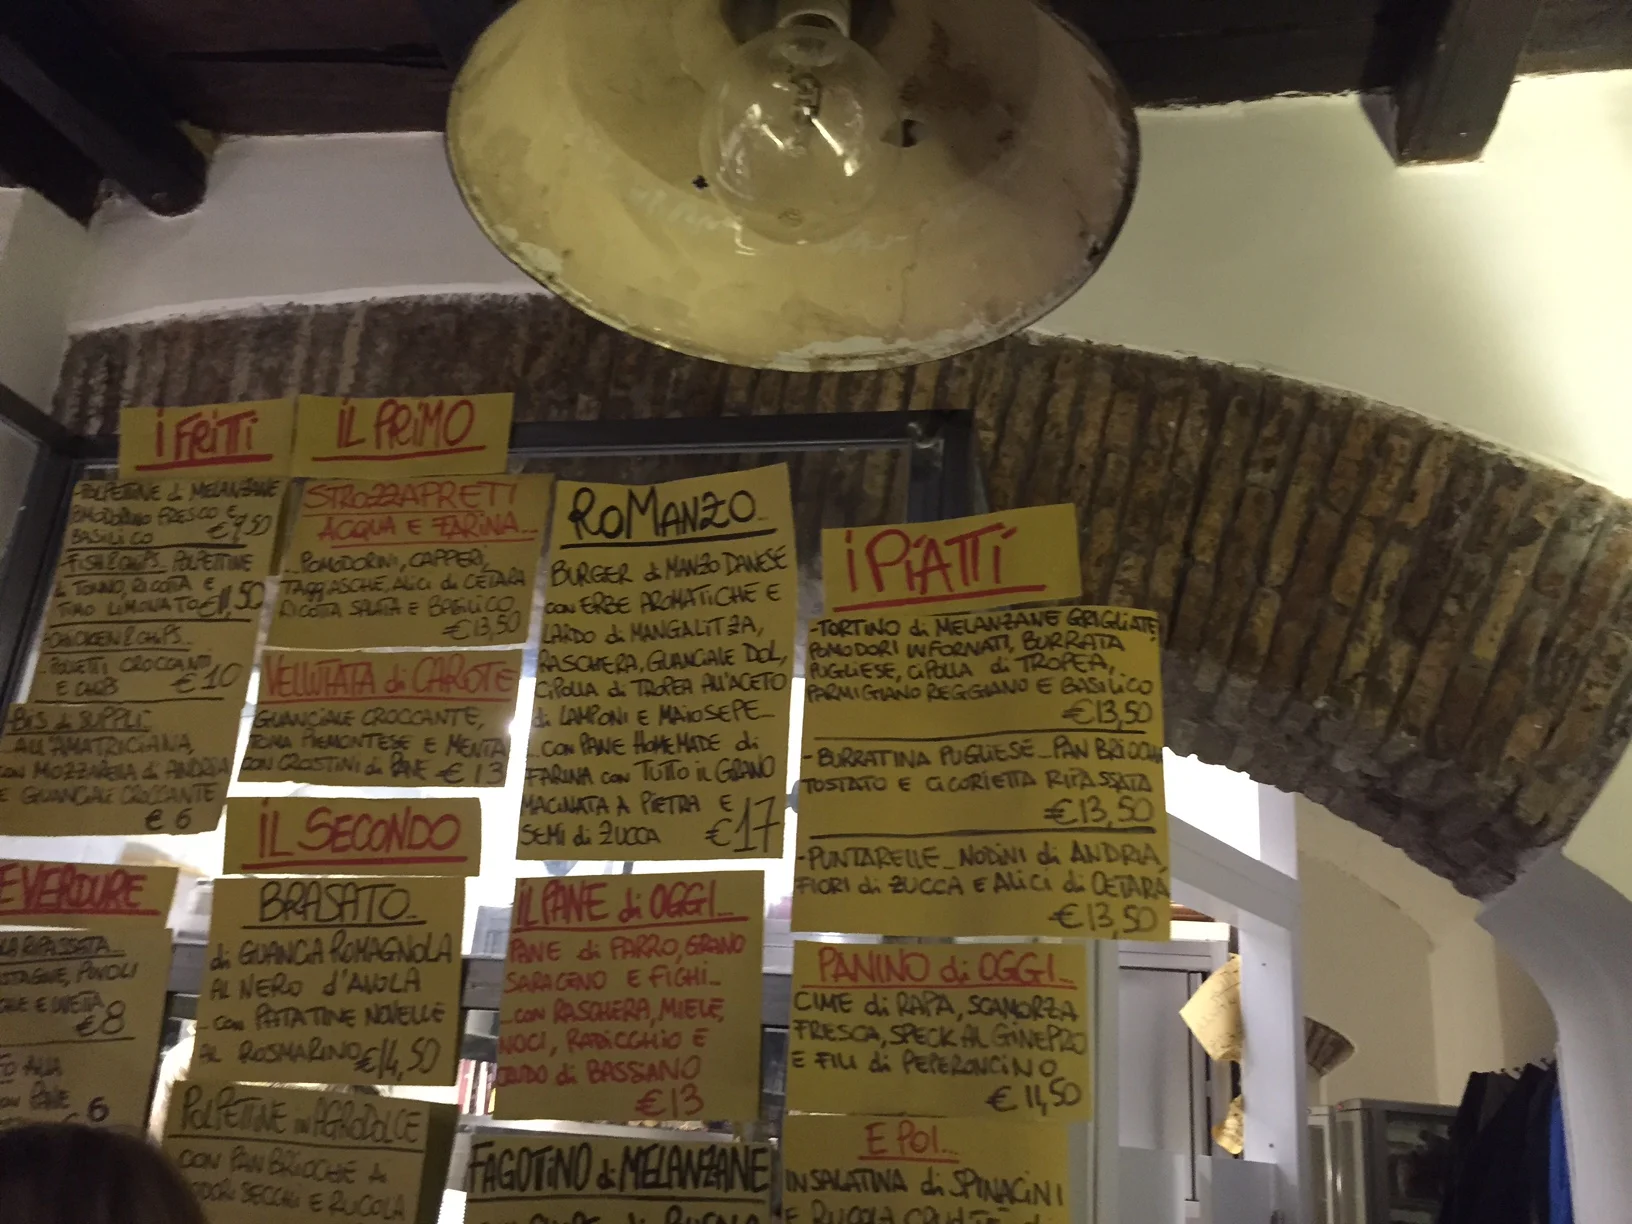 I FRITTI
-POLPETTINE di MELANZANE
POMODORINO FRESCO E
BASILICO €7,50
-FISH & CHIPS.. POLPETTINE
TONNO, RICOTTA E
TIMO LIMONATO €11,50
-CHICKEN & CHIPS...
CROCCANTI
E CHIPS €10
-BIS di SUPPLI'
...ALL'AMATRICIANA,
CON MOZZARELLA di ANDRIA
E GUANCIALE CROCCANTE
€6
E VERDURE
RIPASSATA...
€8
6
IL PRIMO
STROZZAPRETI
ACQUA E FARINA...
...POMODORINI, CAPPERI,
TAGGIASCHE, ALICI di CETARA
RICOTTA SALATA E BASILICO
€13,50
VELLUTATA di CAROTE
GUANCIALE CROCCANTE,
TOMA PIEMONTESE E MENTA
CON CROSTINI di PANE €13
IL SECONDO
BRASATO..
di GUANCIA ROMAGNOLA
AL NERO d'AVOLA
...con PATATINE NOVELLE
AL ROSMARINO €14,50
POLPETTINE in AGRODOLCE
CON PAN BRIOCHE
SECCHI E RUCOLA
ROMANZO...
BURGER di MANZO DANESE
con ERBE AROMATICHE E
LARDO di MANGALITZA,
RASCHERA, GUANCIALE DOL,
CIPOLLA di TROPEA ALL'ACETO
di LAMPONI E MAIOSEPE...
...con PANE HOMEMADE di
FARINA con TUTTO il GRANO
MACINATA A PIETRA E
SEMI di ZUCCA €17
IL PANE di OGGI...
PANE di FARRO, GRANO
SARACENO E FICHI...
...con RASCHERA, MIELE,
NOCI, RADICCHIO E
di BASSANO
€13
FAGOTINO di MELANZANE
I PIATTI
-TORTINO di MELANZANE GRIGLIATE,
POMODORI INFORNATI, BURRATA
PUGLIESE, CIPOLLA di TROPEA,
PARMIGIANO REGGIANO E BASILICO
€13,50
-BURRATINA PUGLIESE...PAN BRIOCHE
TOSTATO E CICORIETTA RIPASSATA
€13,50
-PUNTARELLE...NODINI di ANDRIA,
FIORI di ZUCCA E ALICI di CETARA
€13,50
PANINO di OGGI...
CIME di RAPA, SCAMORZA
FRESCA, SPECK AL GINEPRO
E FILI di PEPERONCINO
€11,50
E POI...
INSALATINA di SPINACINI
E RUCOLA